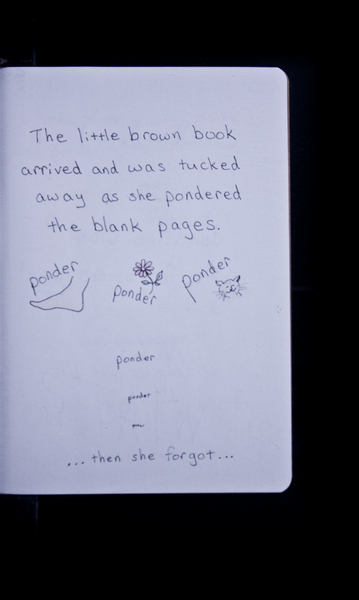 The little brown book
arrived and was tucked
away as she pondered
the blank pages.
ponder ponder ponder
ponder
ponder
...then she forgot...